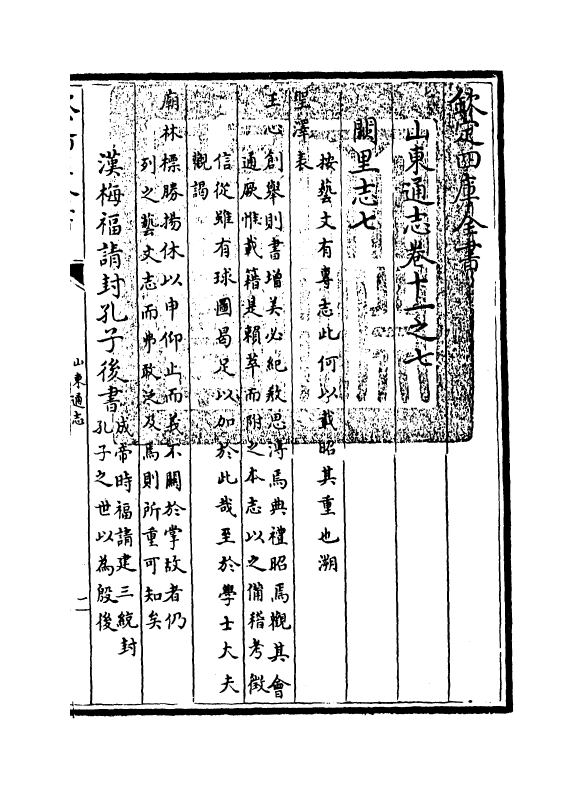 欽定四庫全書
山東通志卷十一之七
闕里志七
按藝文有專志此何以載昭其重也溯
聖澤表
王心創舉則書增美必紀敎思溥焉典禮昭焉觀其會
通厥惟載籍是賴萃而附之本志以之備稽考徵
信從雖有球圖曷足以加於此哉至於學士大夫
觀謁
廟林標勝揚休以申仰止而義不關於掌故者仍
列之藝文志而弗敢泛及焉則所重可知矣
漢梅福請封孔子後書成帝時福請建三統封
孔子之世以為殷後
山東通志